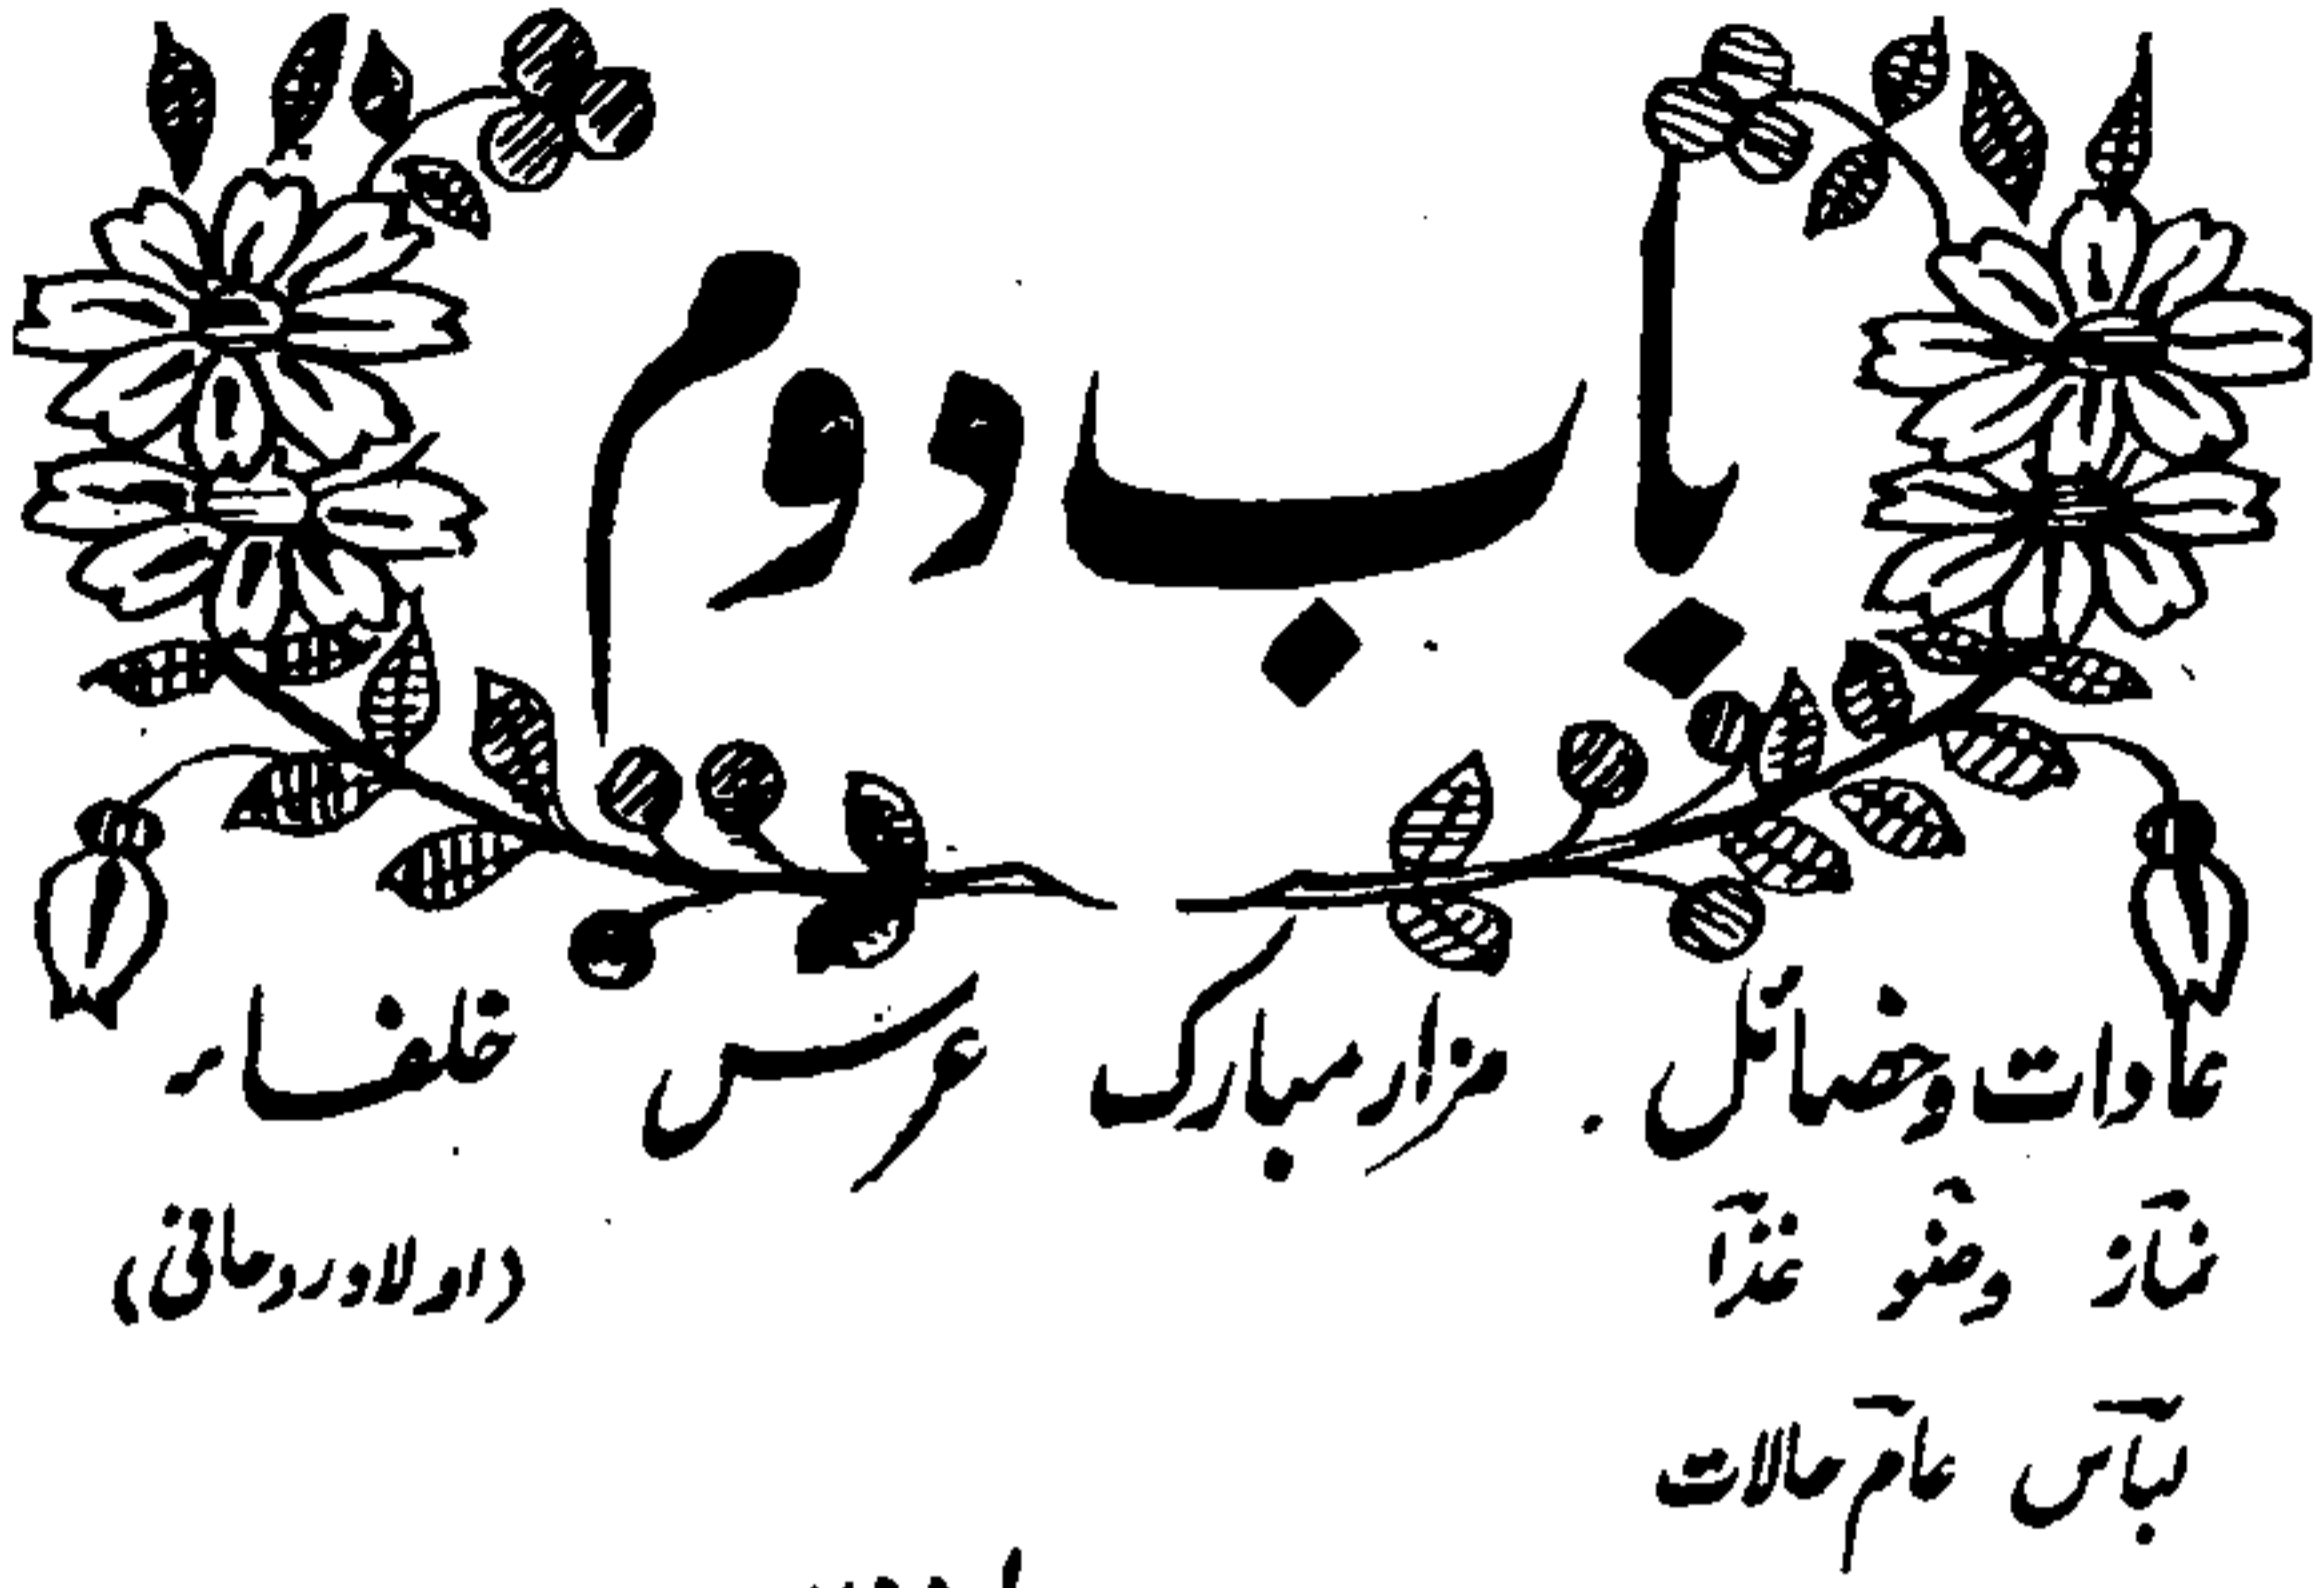 باب دوم
عادات و خصائل۔ مزار مبارک عرس خلفاء
نماز وضو غذا (اولاد روحانی)
لباس عام حالات